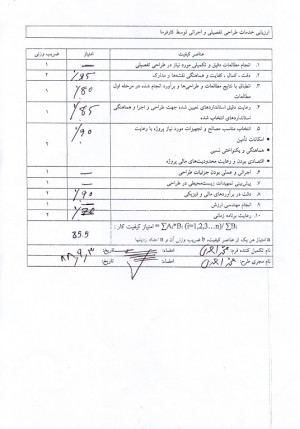 ارزیابی خدمات طراحی تفصیلی و اجرائی توسط کارفرما
عناصر کیفیت امتیاز ضریب وزنی
۱. انجام مطالعات دقیق و تکمیلی مورد نیاز در طراحی تفصیلی — ۱
۲. دقت ، کمال ، کفایت و هماهنگی نقشه‌ها و مدارک ٪۹۵ ۲
۳. انطباق با نتایج مطالعات و برآورد انجام شده در مرحله اول مطالعات ٪۸۰ ۱
۴. رعایت دقیق استانداردهای تعیین شده جهت طراحی و اجرا و هماهنگی استانداردهای انتخاب شده ٪۸۵ ۱
۵. انتخاب مناسب مصالح و تجهیزات مورد نیاز پروژه با رعایت ٪۹۰ ۲
• امکانات تأمین
• هماهنگی و یکنواختی نسبی
• اقتصادی بودن و رعایت محدودیت‌های مالی پروژه
۶. اجرائی و عملی بودن جزئیات طراحی — ۱
۷. پیش‌بینی تمهیدات زیست‌محیطی در طراحی — ۱
۸. دقت در برآوردهای مالی و فیزیکی ٪۹۰ ۲
۹. انجام مهندسی ارزش — ۱
۱۰. رعایت برنامه زمانی ۲
امتیاز کیفیت کار : = ∑Ai*Bi (i=1,2,3…n)/ ∑Bi
85.5
a امتیاز هر یک از عناصر کیفیت، b ضریب وزنی آن و n تعداد ردیفها
نام تکمیل کننده فرم: امضاء: تاریخ:
نام مجری طرح: امضاء: تاریخ: